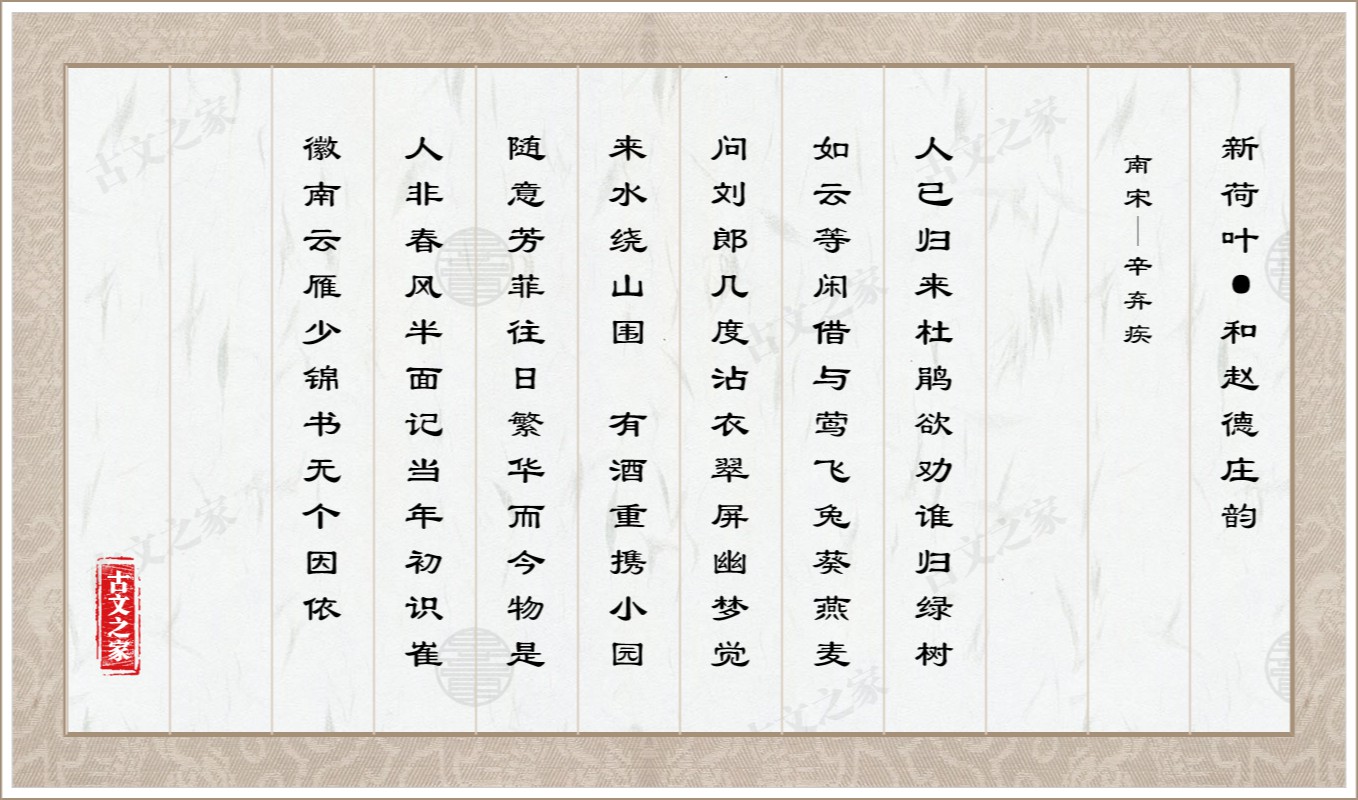 新荷叶●和赵德庄韵
南宋—辛弃疾
人已归来杜鹃欲劝谁归绿树
如云等闲借与莺飞兔葵燕麦
问刘郎几度沾衣翠屏幽梦觉
来水绕山围 有酒重携小园
随意芳菲往日繁华而今物是
人非春风半面记当年初识崔
徽南云雁少锦书无个因依
古文之家